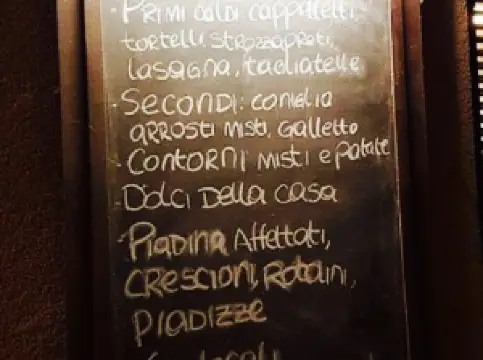 · PRIMI caldi cappelletti
tortelli, strozzapreti,
lasagna, tagliatelle
· SECONDI: coniglio
arrosti misti, galletto
· CONTORNI misti e patate
· DOlci DellA CASA
· PIADINA Affettati,
CRESCIONI, Rotolini,
PIADIZZE